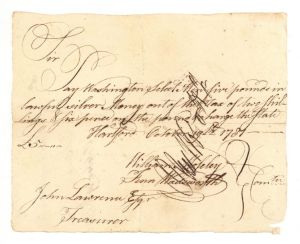 Sir
Pay Washington Select Men five pounds in
lawful silver Money out of the Tax of two Shil
lings & six pence on the pound & charge the State
Hartford October 1781
£5
William Moseley
Wadsworth
Comtee
John Lawrence Esqr
Treasurer